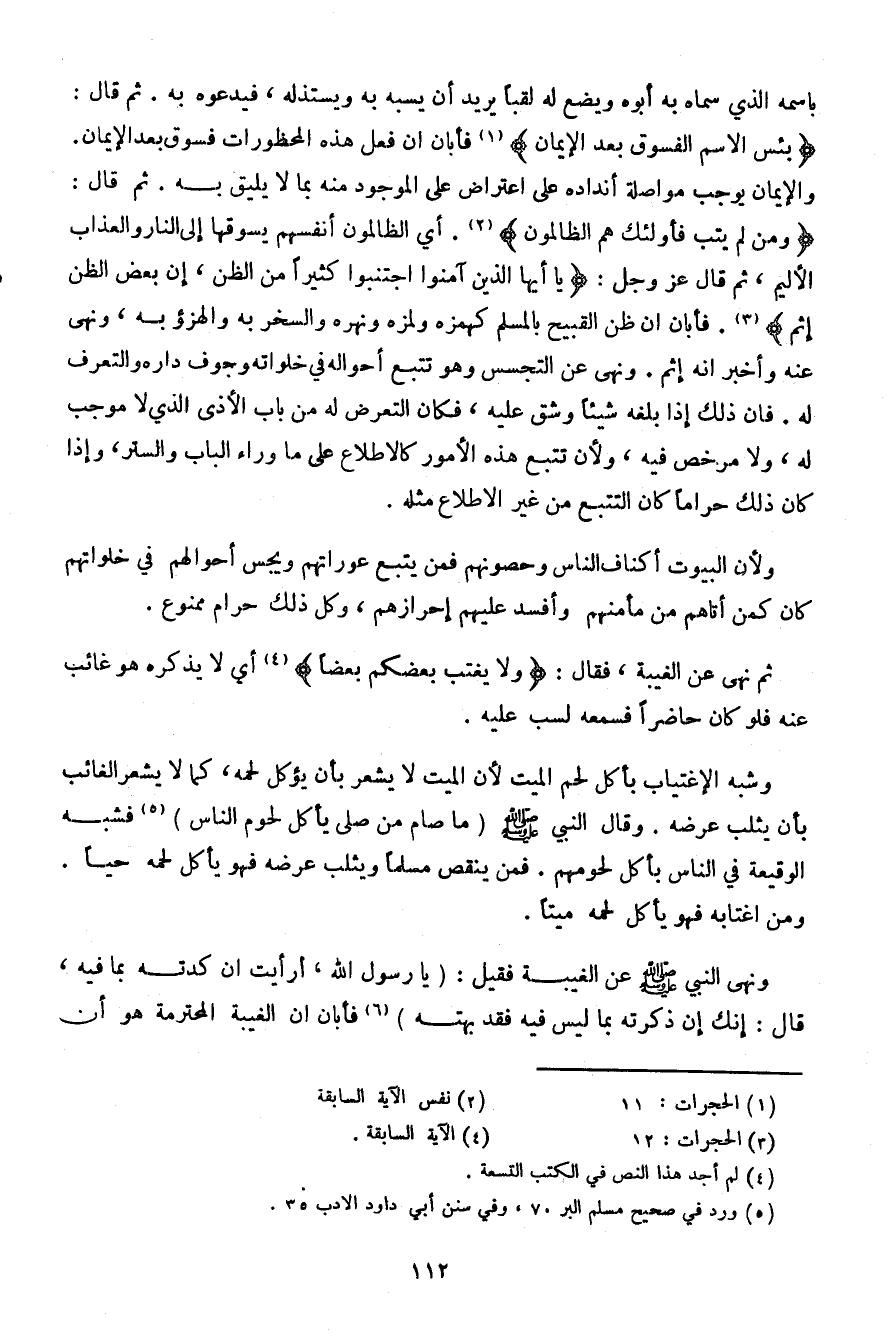 باسمه الذي سماه به أبوه ويضع له لقباً يريد أن يسبه به ويستذله ، فيدعوه به . ثم قال :
﴿ بئس الاسم الفسوق بعد الإيمان ﴾ (١) فأبان ان فعل هذه المحظورات فسوق بعد الإيمان.
والإيمان يوجب مواصلة أنداده على اعتراض على الموجود منه بما لا يليق بـه . ثم قال :
﴿ ومن لم يتب فأولئك هم الظالمون ﴾ (٢) . أي الظالمون أنفسهم يسوقها إلى النار والعذاب
الأليم ، ثم قال عز وجل : ﴿ يا أيها الذين آمنوا اجتنبوا كثيراً من الظن ، إن بعض الظن
إثم ﴾ (٣) . فأبان ان ظن القبيح بالمسلم كهمزه ولمزه ونهره والسخر به والهزؤ بـه ، ونهى
عنه وأخبر انه إثم . ونهى عن التجسس وهو تتبع أحواله في خلواته وجوف داره والتعرف
له . فان ذلك إذا بلغه شيئاً وشق عليه ، فكان التعرض له من باب الأذى الذي لا موجب
له ، ولا مرخص فيه ، ولأن تتبع هذه الأمور كالاطلاع على ما وراء الباب والستر، وإذا
كان ذلك حراماً كان التتبع من غير الاطلاع مثله .
ولأن البيوت أكناف الناس وحصونهم فمن يتبع عوراتهم ويجس أحوالهم في خلواتهم
كان كمن أتاهم من مأمنهم وأفسد عليهم إحرازهم ، وكل ذلك حرام ممنوع .
ثم نهى عن الغيبة ، فقال : ﴿ ولا يغتب بعضكم بعضاً ﴾ (٤) أي لا يذكره هو غائب
عنه فلو كان حاضراً فسمعه لسب عليه .
وشبه الإغتياب بأكل لحم الميت لأن الميت لا يشعر بأن يؤكل لحمه، كما لا يشعر الغائب
بأن يثلب عرضه . وقال النبي ﷺ ( ما صام من صلى يأكل لحوم الناس ) (٥) فشبـه
الوقيعة في الناس بأكل لحومهم . فمن ينقص مسلماً ويثلب عرضه فهو يأكل لحمه حيـاً .
ومن اغتابه فهو يأكل لحمه ميتاً .
ونهى النبي ﷺ عن الغيبـة فقيل : ( يا رسول الله ، أرأيت ان كدتـه بما فيه ،
قال : إنك إن ذكرته بما ليس فيه فقد بهتـه ) (٦) فأبان ان الغيبة المحترمة هو أن
(١) الحجرات : ١١ (٢) نفس الآية السابقة
(٣) الحجرات : ١٢ (٤) الآية السابقة .
(٤) لم أجد هذا النص في الكتب التسعة .
(٥) ورد في صحيح مسلم البر ٧٠ ، وفي سنن أبي داود الادب ٣٥ .
١١٢